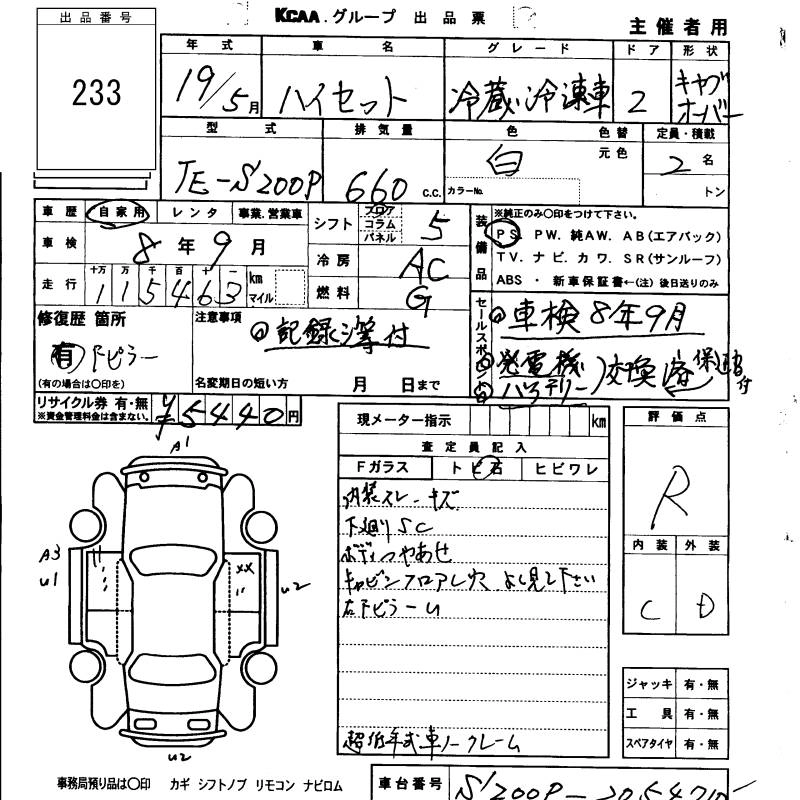 KCAA.グループ 出品票
主催者用
出品番号
233
年式 車名 グレード ドア 形状
19/5月 ハイゼット 冷蔵冷凍車 2 キャブオーバー
型式 排気量 色 色替 定員・積載
TE-S200P 660 C.C. 白 元色 2名
カラーNo. トン
車歴 自家用 レンタ 事業.営業車
車検 8年9月
走行 十万 万 千 百 十 一
115463 km マイル
シフト フロア コラム パネル 5
冷房 AC
燃料 G
装備品 ※純正のみ〇印をつけて下さい。
PS. PW. 純AW. AB(エアバック)
TV. ナビ. カワ. SR(サンルーフ)
ABS ・ 新車保証書←(注)後日送りのみ
修復歴 箇所
有 下ピラー
(有の場合は〇印を)
注意事項
記録簿付
名変期日の短い方 月 日まで
セールスポイント
車検8年9月
発電機
バッテリー 交換済 保証書付
リサイクル券 有・無 ¥5440円
※資金管理料金は含まない。
現メーター指示 km
査定員記入
Fガラス トビ石 ヒビワレ
内装スレ.キズ
下廻りSC
ボディつやあせ
キャビンフロアし穴 よく見て下さい
右下ピラーU
超低年式車ノークレーム
評価点
R
内装 外装
C D
ジャッキ 有・無
工具 有・無
スペアタイヤ 有・無
A1
A3
U1
XX
U2
U2
事務局預り品は〇印 カギ シフトノブ リモコン ナビロム
車台番号 S200P-